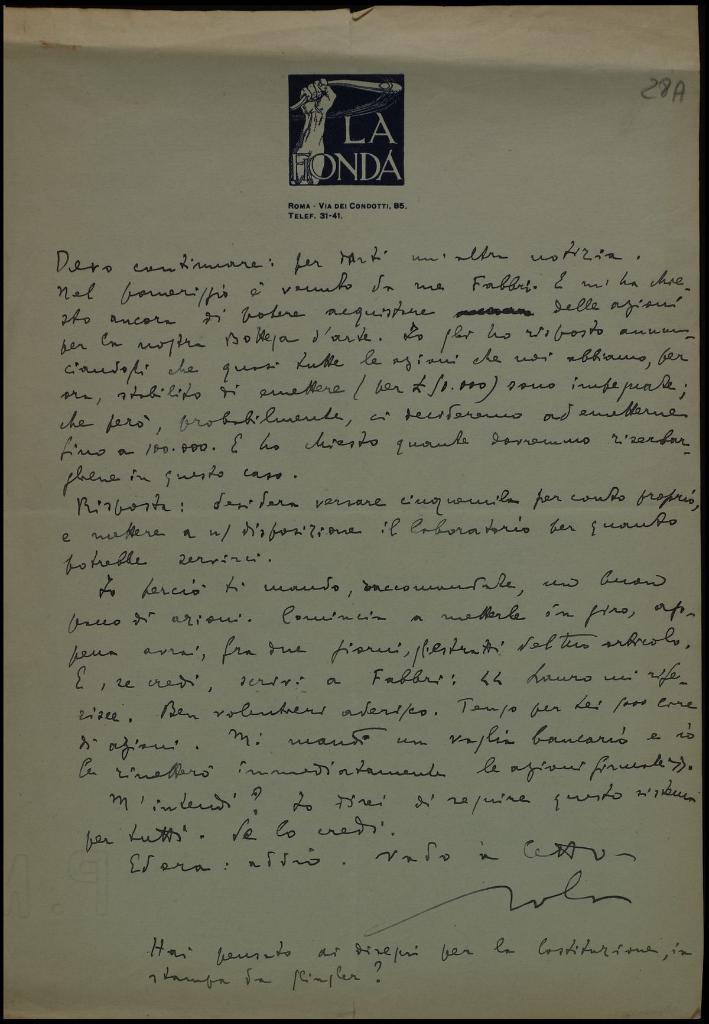 28A
LA
FONDÁ
ROMA - VIA DEI CONDOTTI, 85.
TELEF. 31-41.
Devo continuare: per darti un'altra notizia.
Nel pomeriggio è venuto da me Fabbri. E mi ha chie-
sto ancora di potere acquistare delle azioni
per la nostra Bottega d'arte. Io gli ho risposto annun-
ciandogli che quasi tutte le azioni che noi abbiamo, per
ora, stabilito di emettere (per £ 50.000) sono impegnate;
che però, probabilmente, ci decideremo ad emetterne
fino a 100.000. E ho chiesto quante dovremmo riserbar-
gliene in questo caso.
Risposta: desidera versare cinquemila per conto proprio,
e mettere a n/ disposizione il laboratorio per quanto
potrebbe servirci.
Io perciò ti mando, raccomandate, un buon
pacco di azioni. Comincia a metterle in giro, ap-
pena avrai, fra due giorni, gli estratti del tuo articolo.
E, se credi, scrivi a Fabbri: << Lauro mi rife-
risce. Ben volentieri aderisco. Tengo per Lei 5000 lire
di azioni. Mi mandi un vaglia bancario e io
Le rimetterò immediatamente le azioni firmate >>.
M'intendi? Io direi di seguire questo sistema
per tutti. Se lo credi.
Ed ora: addio. Vado a letto
Hai pensato ai disegni per la Costituzione, in
stampa da